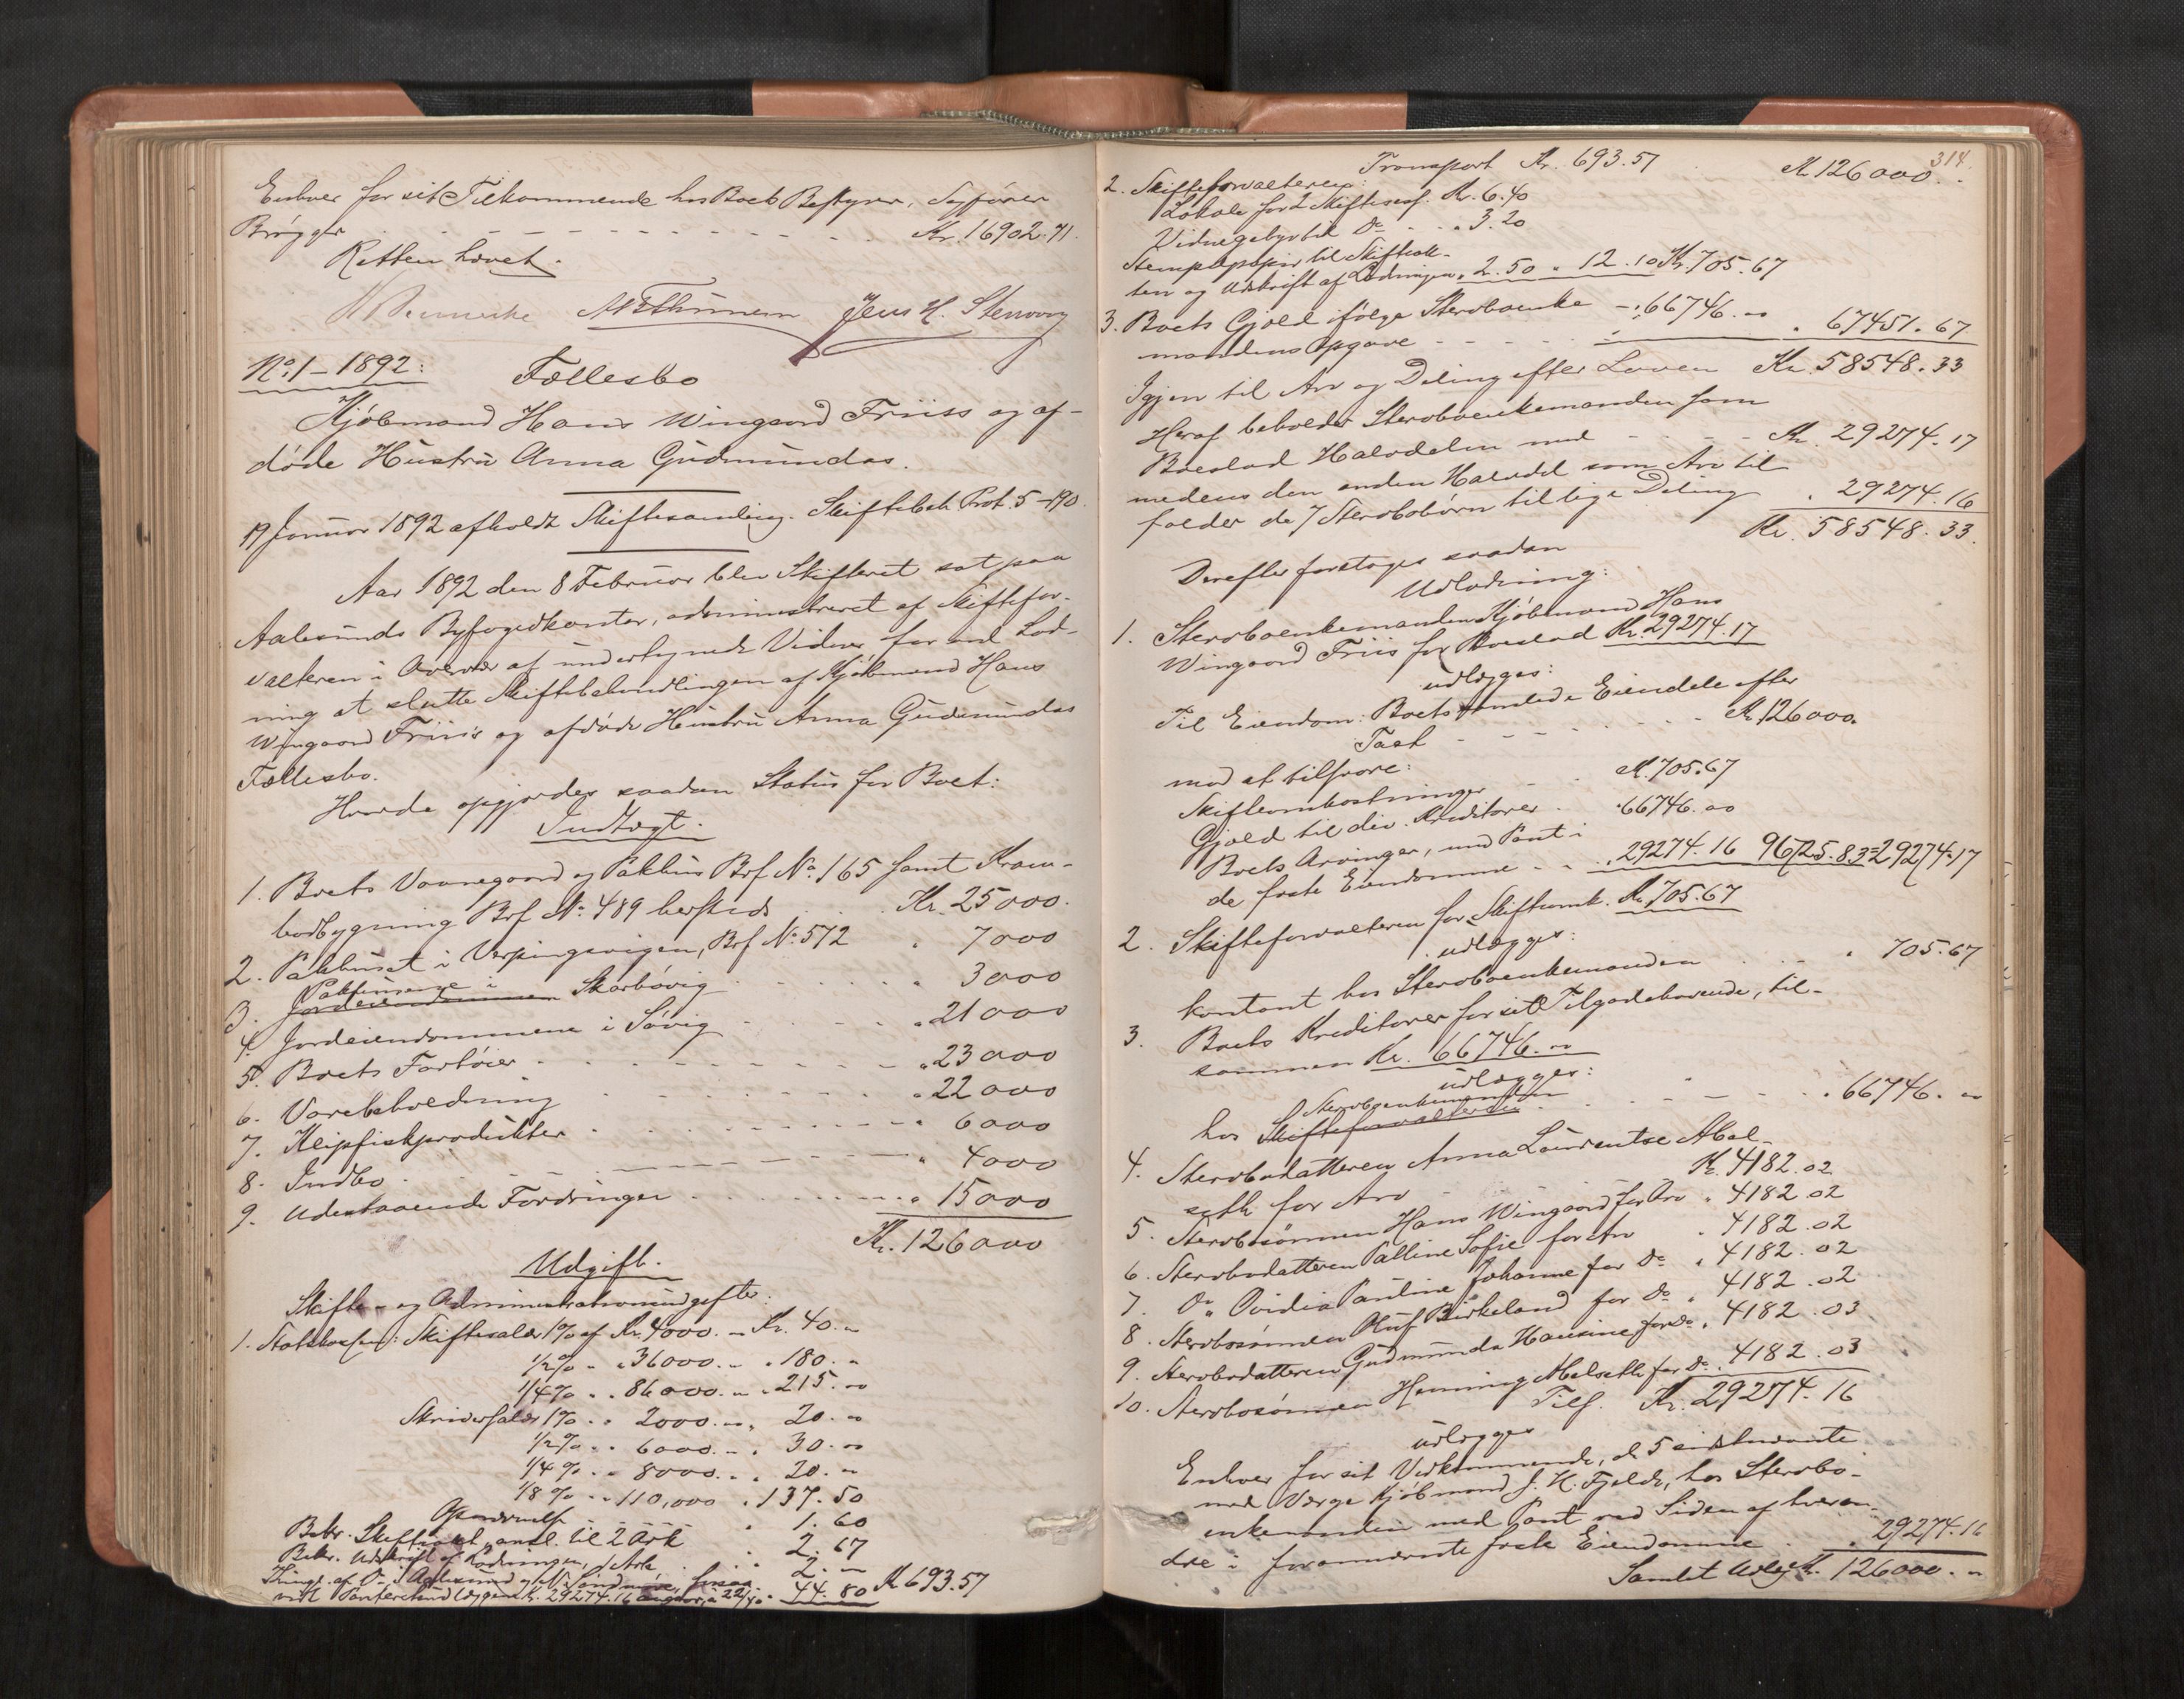 Enhver for sit Tilkommende hos Boets Bestyrer, Sagfører
Brøgger - - - - - - - - - Kr. 16902.71.
Retten hævet.
Jens H. Stenvaag
No. 1 - 1892:
Fællesbo
Kjöbmand Hans Wingaard Friiss og af-
døde Hustru Anna Gudmundas.
19 Januar 1892 afholdt Skiftesamling. Skiftebeh. Prot. 5-190.
Aar 1892 den 8 Februar blev Skifteret sat paa
Aalesunds Byfogedkontor, administreret af Skiftefor-
valteren i Overvær af undertegnede Vidner for ved Lod-
ning at slutte Skiftebehandlingen af Kjøbmand Hans
Wingaard Friis's og afdøde Hustru Anna Gudmundas
Fællesbo.
Hvorda opgjordes saadan Status for Boet:
Indtægt.
1. Boets Vaanegaard og Pakhus Brf No. 165 samt Kram-
bodbygning Brf No. 489 hersteds . . . Kr. 25000.
2. Pakhuset i Verpingsvigen, Brf No. 572 " 7000
3. Jordeiendommen Pakhusene i Skarbövig " 3000
4. Jordeiendommene i Søvig " 21000
5. Boets Fartöier " 23000
6. Varebeholdning " 22000
7. Klipfiskprodukter " 6000
8. Indbo " 4000
9. Udestaaende Fordringer " 15000
Kr. 126000
Udgift.
Skifte- og Administrationsudgifter:
1. Statskassen: Skiftesalær 1% af Kr. 4000. - Kr. 40. -
1/2% - " 36000. - " 180. -
1/4% " " 86000. - " 215. -
Skriversalær 1% " " 2000. - " 20. -
1/2% " " 6000. - " 30. -
1/4% " " 8000. - " 20. -
1/8% " " 110,000 " 137.50
" 1.60
Bekr. Skifteakt, ansl. til 2 Ark " 2.67
Bekr. Udskrift af Lodningen, 1 Ark " 2. -
Thingl. af Do i Aalesund og N. Søndmøre,
ved Panteret udlæggene Kr. 29274.16 " 44.80 Kr 693.57
314
Transport Kr. 693.57 Kr 126000. -
2. Skifteforvalteren:
Lokale for 2 Skiftesaml. Kr. 6.40
Vidnegebyr til Do - - " 3.20
Stempletpapir til Skifteak-
ten og Udskrift af Lodningen " 2.50 " 12.10 Kr. 705.67
3. Boets Gjæld ifølge Stervboenke -: 66746. -
mandens Opgave - - - " 67451.67
Igjen til Arv og Deling efter Loven Kr. 58548.33
Heraf beholder Stervboenkemanden som
Boeslod Halvdelen med - - - - Kr. 29274.17
medens den anden Halvdel som Arv til-
falder de 7 Stervbobørn til lige Deling " 29274.16
Kr. 58548.33.
Derefter foretoges saadan
Udlodning:
1. Stervboenkemanden Kjøbmand Hans
Wingaard Friis for Boeslod Kr. 29274.17
udlægges:
Til Eiendom: Boets samlede Eiendele efter
Taxt - - - - - - - Kr. 126000.
mod at tilsvare:
Skifteomkostninger - - Kr. 705.67
Gjæld til div. Kreditorer . " 66746. 00
Boets Arvinger, med Pant i
de faste Eiendomme - - " 29274.16 96725.83 = 29274.17
2. Skifteforvalteren for Skifteomk. Kr. 705.67
udlægges:
kontant hos Stervboenkemanden . . . " 705.67
3. Boets Kreditorer for sit Tilgodehavende, til-
sammen Kr. 66746. -
udlægges:
hos Skifteforvalteren Stervboenkemanden . . " 66746. -
4. Stervbodatteren Anna Laurentse Abel-
seth for Arv - Kr. 4182.02
5. Stervbosønnen Hans Wingaard for Arv " 4182.02
6. Stervbodatteren Palline Sofie for Arv " 4182.02
7. Do " Ovidia Pauline Johanne for Do " 4182.02
8. Stervbosønnen Oluf Birkeland for Do " 4182.02
9. Stervbodatteren Gudmunda Hansine for Do " 4182.03
10. Stervbosønnen Henning Abelseth for Do " 4182.03
Tils. Kr. 29274.16
udlægges
Enhver for sit Vedkommende, de 5 sidstnævnte
med Værge Kjøbmand J. H. Fjelde, hos Stervbo-
enkemanden med Pant ved Siden af hveran-
dre i forannævnte faste Eiendomme . . " 29274.16
Samlet Udlæg Kr. 126000. -